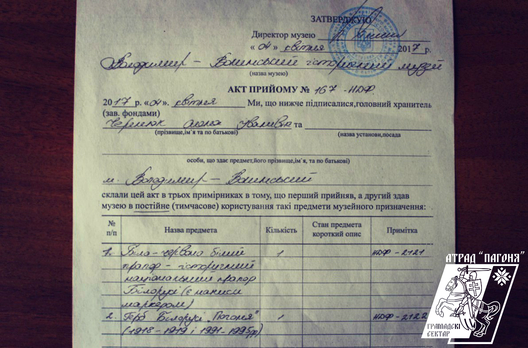 ЗАТВЕРДЖУЮ
Директор музею
« 04 » квітня 2017 р.
Володимир - Волинський історичний музей
(назва музею)
АКТ ПРИЙОМУ № 167 - НДФ
2017 р. «04» квітня Ми, що нижче підписалися,головний хранитель
(зав. фондами)
та
(прізвище,ім'я, та по батькові) (назва установи,посада
особи, що здає предмет,його прізвище,ім'я, та по батькові)
м. Володимир - Волинський
склали цей акт в трьох примірниках в тому, що перший прийняв, а другий здав
музею в постійне (тимчасове) користування такі предмети музейного призначення:
№ п/п Назва предмета Кількість Стан предмета короткий опис Примітка
1. Біло - червоно білий 1 НДФ - 2121
прапор - історичний
національний прапор
Білорусі (є написи
маркером)
2. Герб Білорусі "Погоня" 1 НДФ - 2122
(1918 - 1919 і 1991 - 1995рр)
АТРАД "ПАГОНЯ"
ГРАМАДСКІ
СЕКТАР